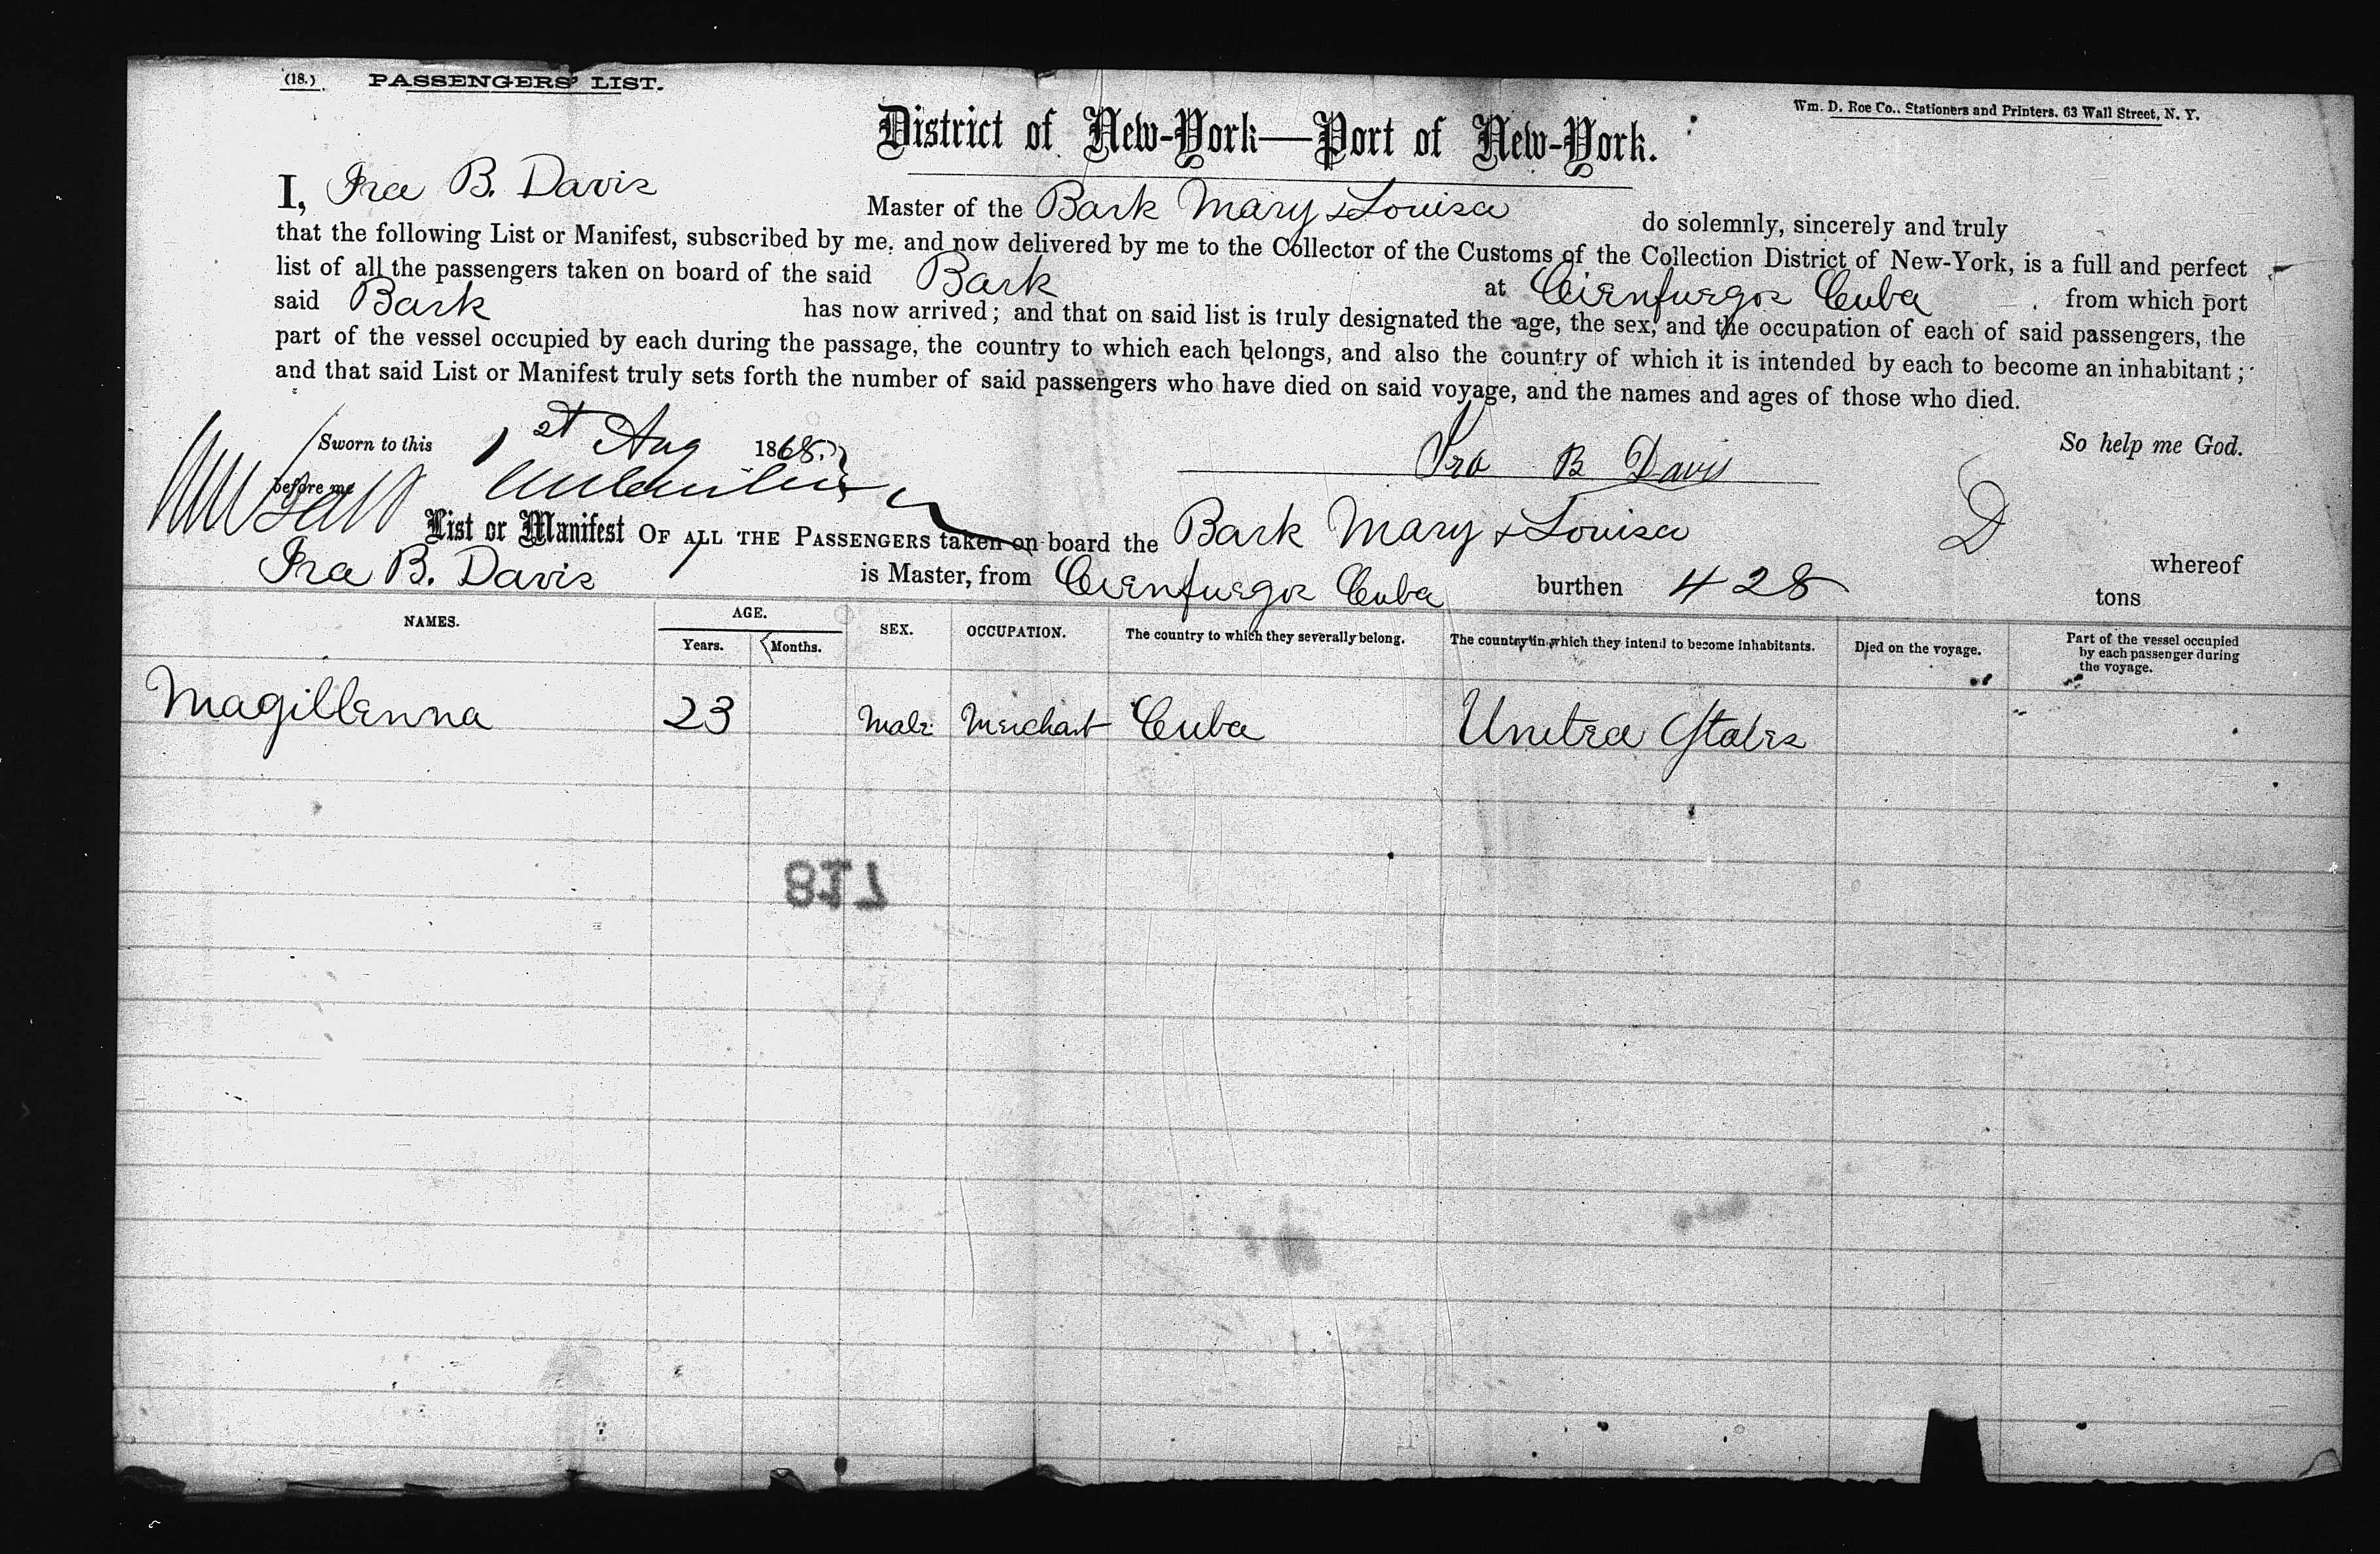 (18.) PASSENGERS' LIST.
Wm. D. Roe Co., Stationers and Printers, 63 Wall Street, N. Y.
District of New-York—Port of New-York.
I, Ira B. Davis Master of the Bark Mary & Louisa do solemnly, sincerely and truly
that the following List or Manifest, subscribed by me, and now delivered by me to the Collector of the Customs of the Collection District of New-York, is a full and perfect
list of all the passengers taken on board of the said Bark at Cienfuegos Cuba from which port
said Bark has now arrived; and that on said list is truly designated the age, the sex, and the occupation of each of said passengers, the
part of the vessel occupied by each during the passage, the country to which each belongs, and also the country of which it is intended by each to become an inhabitant;
and that said List or Manifest truly sets forth the number of said passengers who have died on said voyage, and the names and ages of those who died.
Sworn to this 1st Aug 1868. So help me God.
before me Ira B Davis
List or Manifest OF ALL THE PASSENGERS taken on board the Bark Mary & Louisa whereof
Ira B. Davis is Master, from Cienfuegos Cuba burthen 428 tons
NAMES. AGE. Years. Months. SEX. OCCUPATION. The country to which they severally belong. The country in which they intend to become inhabitants. Died on the voyage. Part of the vessel occupied by each passenger during the voyage.
Magillenna 23 Male Merchant Cuba United States
817